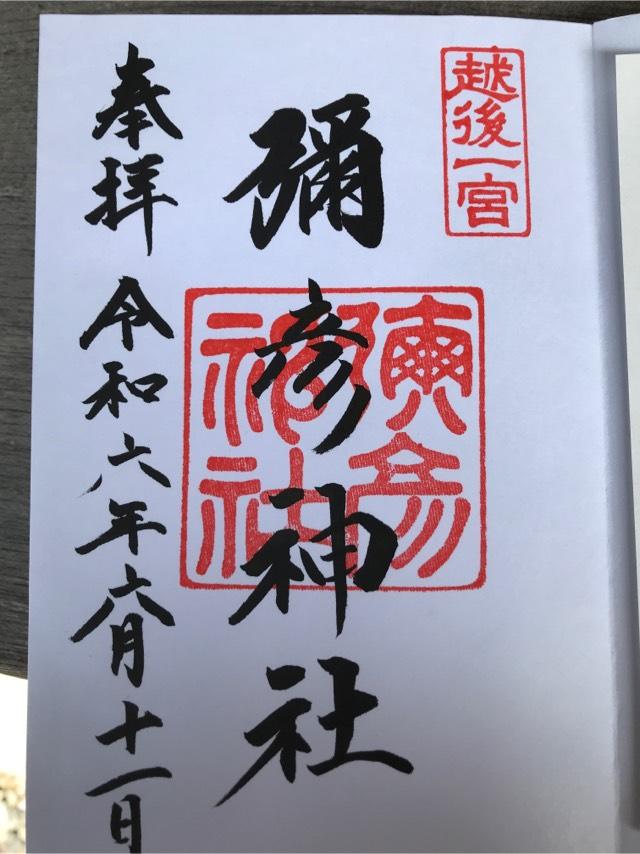 越後一宮
彌彦神社
彌彦神社
奉拝 令和六年六月十一日